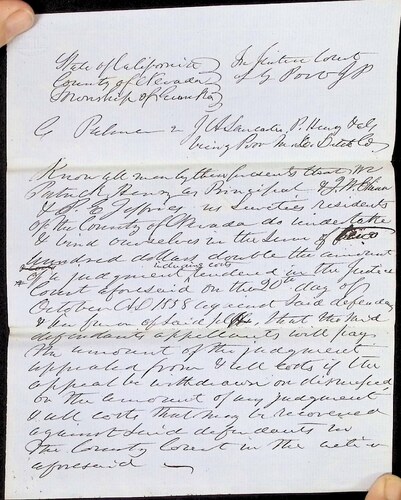 State of California In Justice Court
County of Nevada of G Pow J P
Township of Eureka
G Palmer v J A Lancaster, P. Henry & el
Poor Mans Ditch Co
Know all men by these presents that We
Patrick Henry as Principal & J. W.
& S. E. Jeffries as sureties residents
of the County of Nevada do undertake
& bind ourselves in the sum of
hundred dollars double the amount
including costs
of a judgment rendered in the Justice
Court aforesaid on the 20th day of
October AD 1858 against said defendants
& in favor of said plff, that the said
defendants appellants will pay
the amount of the judgment
appealed from & all costs if the
appeal be withdrawn or dismissed
or the amount of any judgment
& all costs that may be recovered
against said defendants in
the County Court in the action
aforesaid